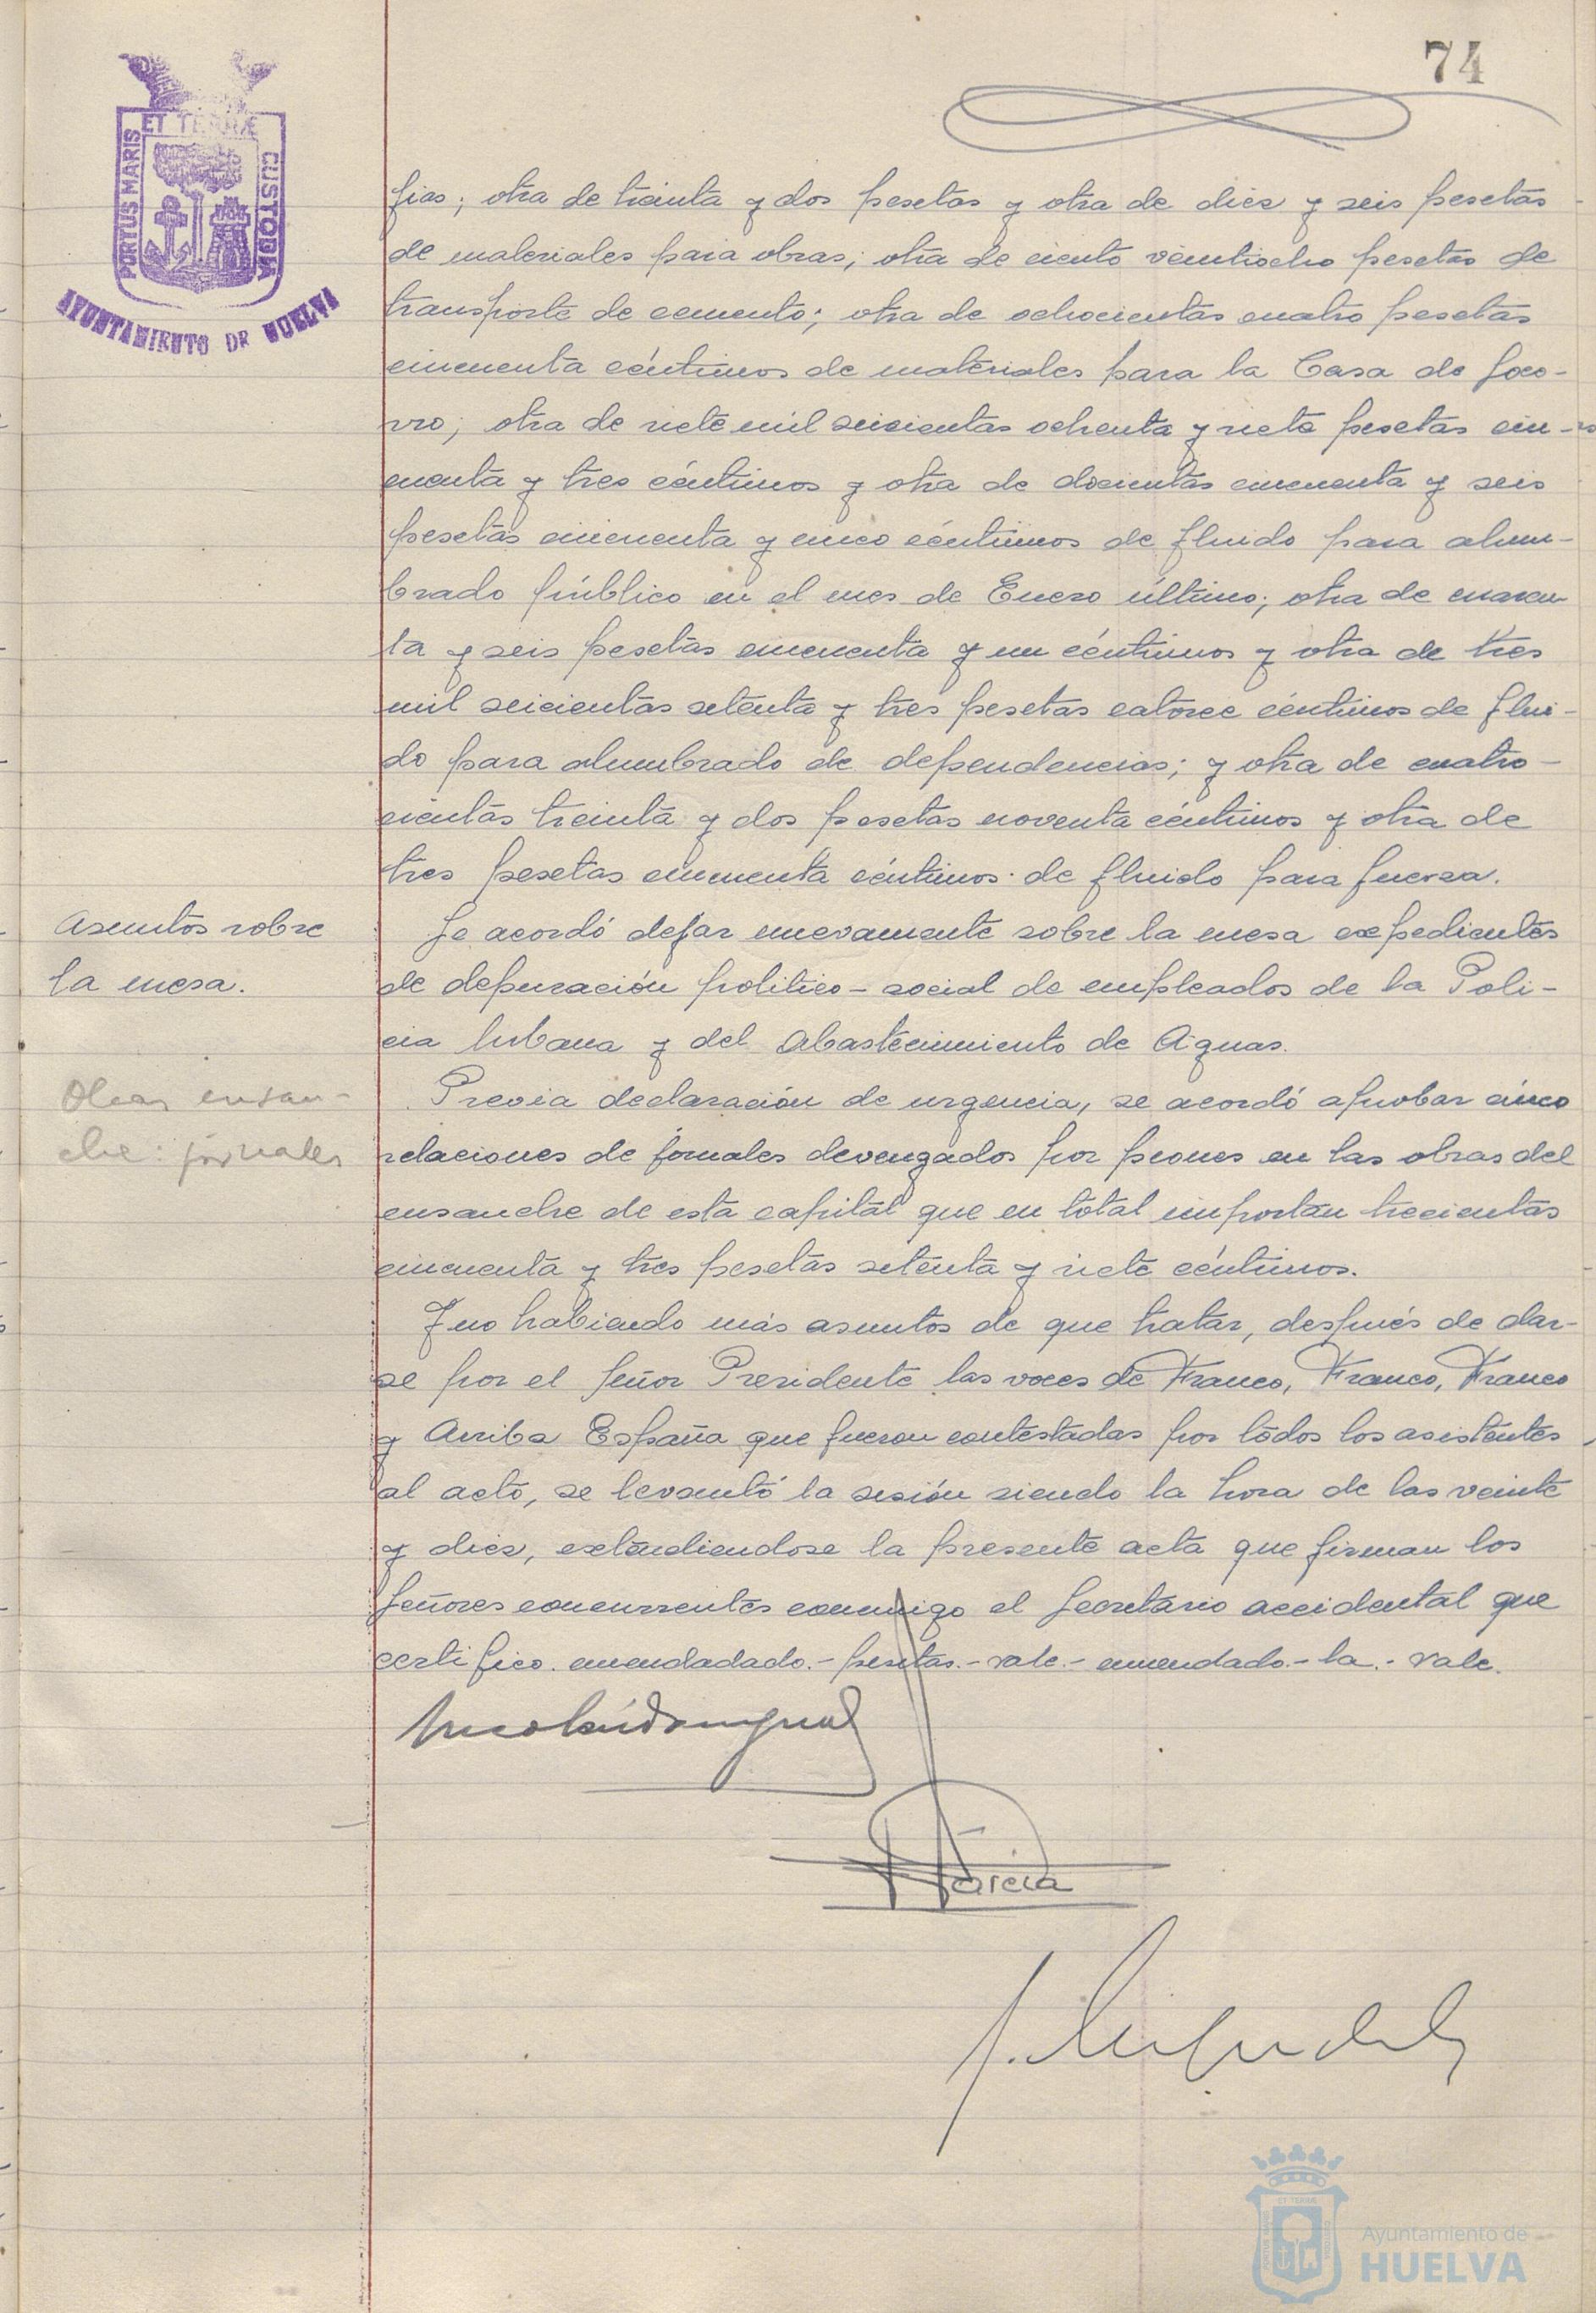 74
PORTUS MARIS ET TERRÆ CUSTODIA
AYUNTAMIENTO DE HUELVA
fias; otra de treinta y dos pesetas y otra de diez y seis pesetas
de materiales para obras; otra de ciento veintiocho pesetas de
transporte de cemento; otra de ochocientas cuatro pesetas
cincuenta céntimos de materiales para la Casa de Soco-
rro; otra de siete mil seicientas ochenta y siete pesetas cin-
cuenta y tres céntimos y otra de docientas cincuenta y seis
pesetas cincuenta y cinco céntimos de fluido para alum-
brado público en el mes de Enero último; otra de cuaren
ta y seis pesetas cincuenta y un céntimos y otra de tres
mil seicientas setenta y tres pesetas catorce céntimos de flui-
do para alumbrado de dependencias; y otra de cuatro-
cientas treinta y dos pesetas noventa céntimos y otra de
tres pesetas cincuenta céntimos de fluido para fuerza.
Asuntos sobre
la mesa.
Se acordó dejar nuevamente sobre la mesa expedientes
de depuración político-social de empleados de la Poli-
cia Urbana y del Abastecimiento de Aguas.
Obras ensan-
che: jornales
Previa declaración de urgencia, se acordó aprobar cinco
relaciones de jornales devengados por peones en las obras del
ensanche de esta capital que en total importan trecientas
cincuenta y tres pesetas setenta y siete céntimos.
Y no habiendo más asuntos de que tratar, después de dar-
se por el Señor Presidente las voces de Franco, Franco, Franco
y Arriba España que fueron contestadas por todos los asistentes
al acto, se levantó la sesión siendo la hora de las veinte
y diez, extendiendose la presente acta que firman los
Señores concurrentes conmigo el Secretario accidental que
certifico. enmendadado.- pesetas.- vale.- enmendado.- la.- vale.
García
Ayuntamiento de
HUELVA